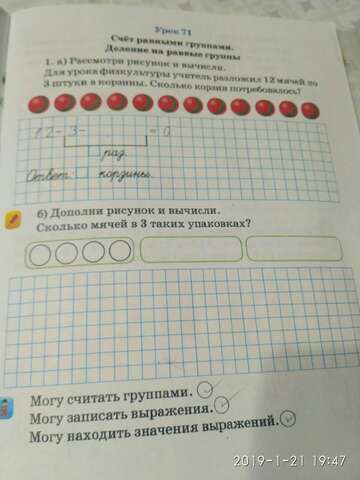 Урок 71
Счёт равными группами.
Деление на равные группы
1. а) Рассмотри рисунок и вычисли.
Для урока физкультуры учитель разложил 12 мячей по
3 штуки в корзины. Сколько корзин потребовалось?
12 - 3 - = 0
раз
Ответ: корзины.
б) Дополни рисунок и вычисли.
Сколько мячей в 3 таких упаковках?
Могу считать группами.
Могу записать выражения.
Могу находить значения выражений.
2019-1-21 19:47